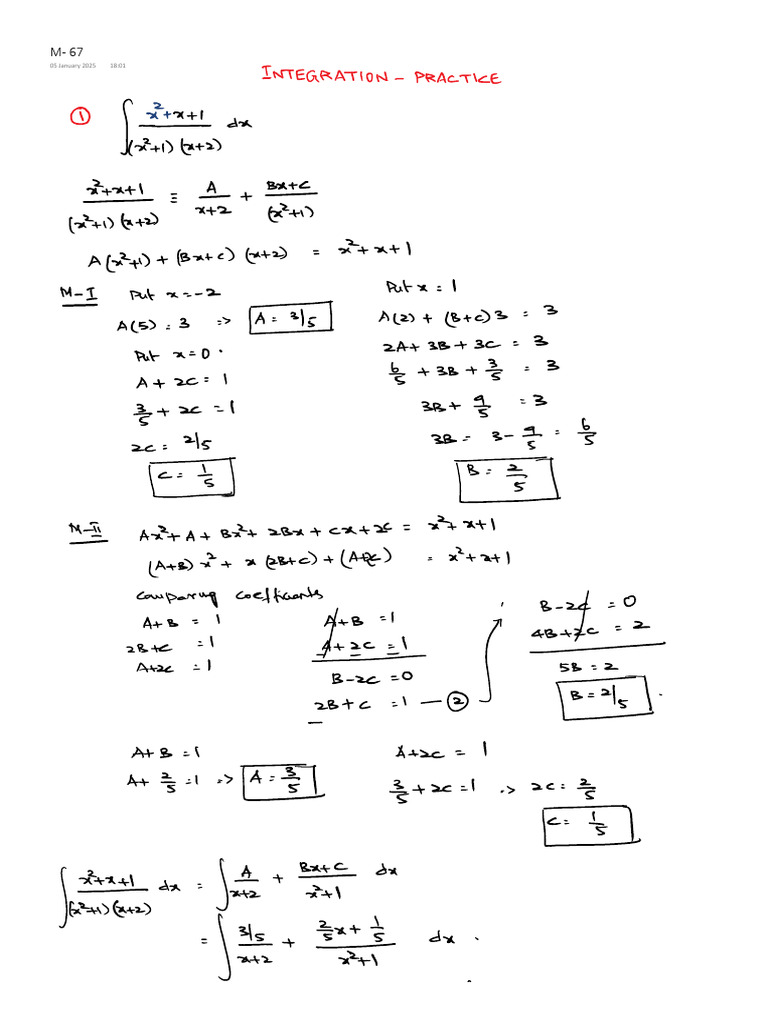 M- 67
05 January 2025 18:01
INTEGRATION - PRACTICE
① ∫ (x²+x+1)/((x²+1)(x+2)) dx
(x²+x+1)/((x²+1)(x+2)) ≡ A/(x+2) + (Bx+C)/(x²+1)
A(x²+1) + (Bx+C)(x+2) = x²+x+1
M-I Put x=-2
A(5) = 3 => A = 3/5
Put x=0.
A + 2C = 1
3/5 + 2C = 1
2C = 2/5
C = 1/5
Put x = 1
A(2) + (B+C)3 = 3
2A + 3B + 3C = 3
6/5 + 3B + 3/5 = 3
3B + 9/5 = 3
3B = 3 - 9/5 = 6/5
B = 2/5
M-II Ax²+A+Bx²+2Bx+Cx+2C = x²+x+1
(A+B)x² + x(2B+C) + (A+2C) = x²+x+1
Comparing coefficients
A+B = 1
2B+C = 1
A+2C = 1
A+B = 1
A+2C = 1
B-2C = 0
2B+C = 1 — ②
B-2C = 0
4B+2C = 2
5B = 2
B = 2/5
A+B = 1
A + 2/5 = 1 => A = 3/5
A+2C = 1
3/5 + 2C = 1 => 2C = 2/5
C = 1/5
∫ (x²+x+1)/((x²+1)(x+2)) dx = ∫ A/(x+2) + (Bx+C)/(x²+1) dx
= ∫ (3/5)/(x+2) + (2/5 x + 1/5)/(x²+1) dx.